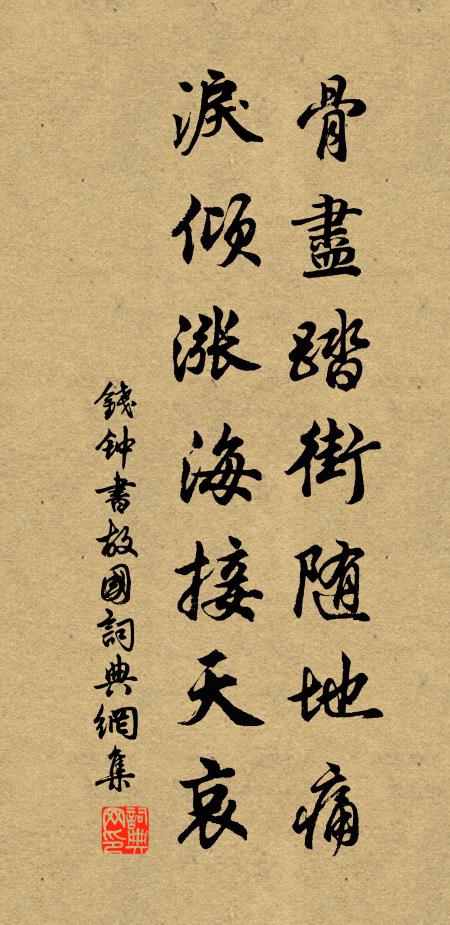 骨盡踏街隨地痛
淚傾漲海接天哀
錢鍾書故國詞典網集
詞典网印